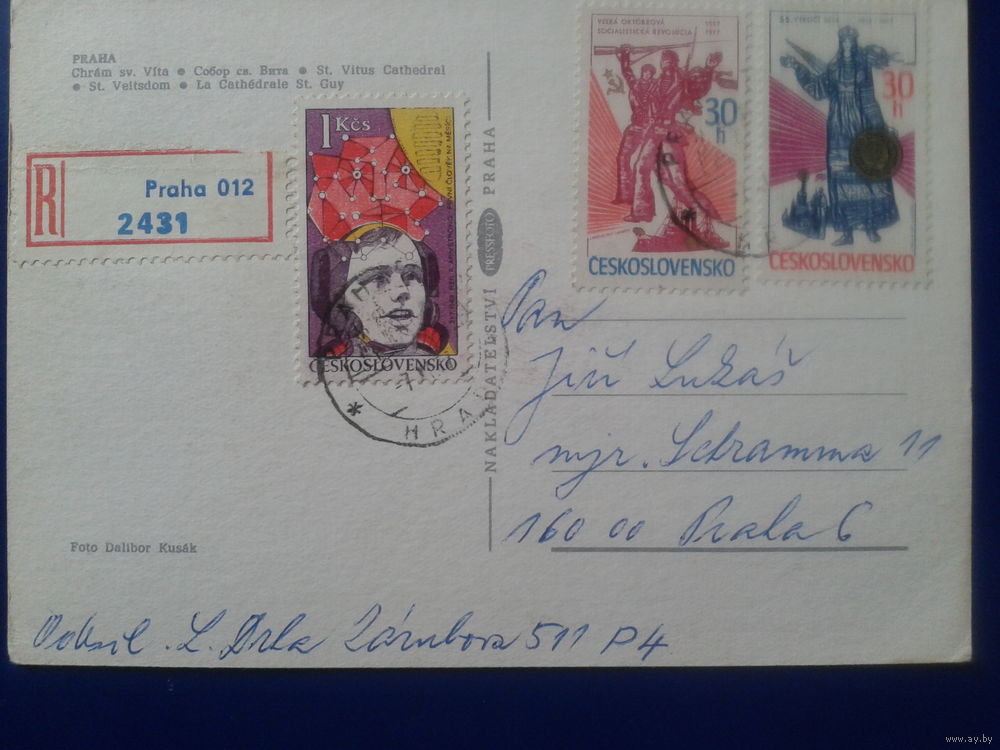 PRAHA
Chrám sv. Víta ● Собор св. Вита ● St. Vitus Cathedral
● St. Veitsdom ● La Cathédrale St. Guy
R
Praha 012
2431
1 Kčs
ČESKOSLOVENSKO
HRAD
VELKÁ ŘÍJNOVÁ
SOCIALISTICKÁ REVOLUCE
1917
1977
30 h
ČESKOSLOVENSKO
30 h
ČESKOSLOVENSKO
NAKLADATELSTVÍ PRESSFOTO PRAHA
Pan
Jiří Lukáš
mjr. Schramma 11
160 00 Praha 6
Foto Dalibor Kusák
Odesil. L. Drla Zárubova 511 P4
www.ay.by